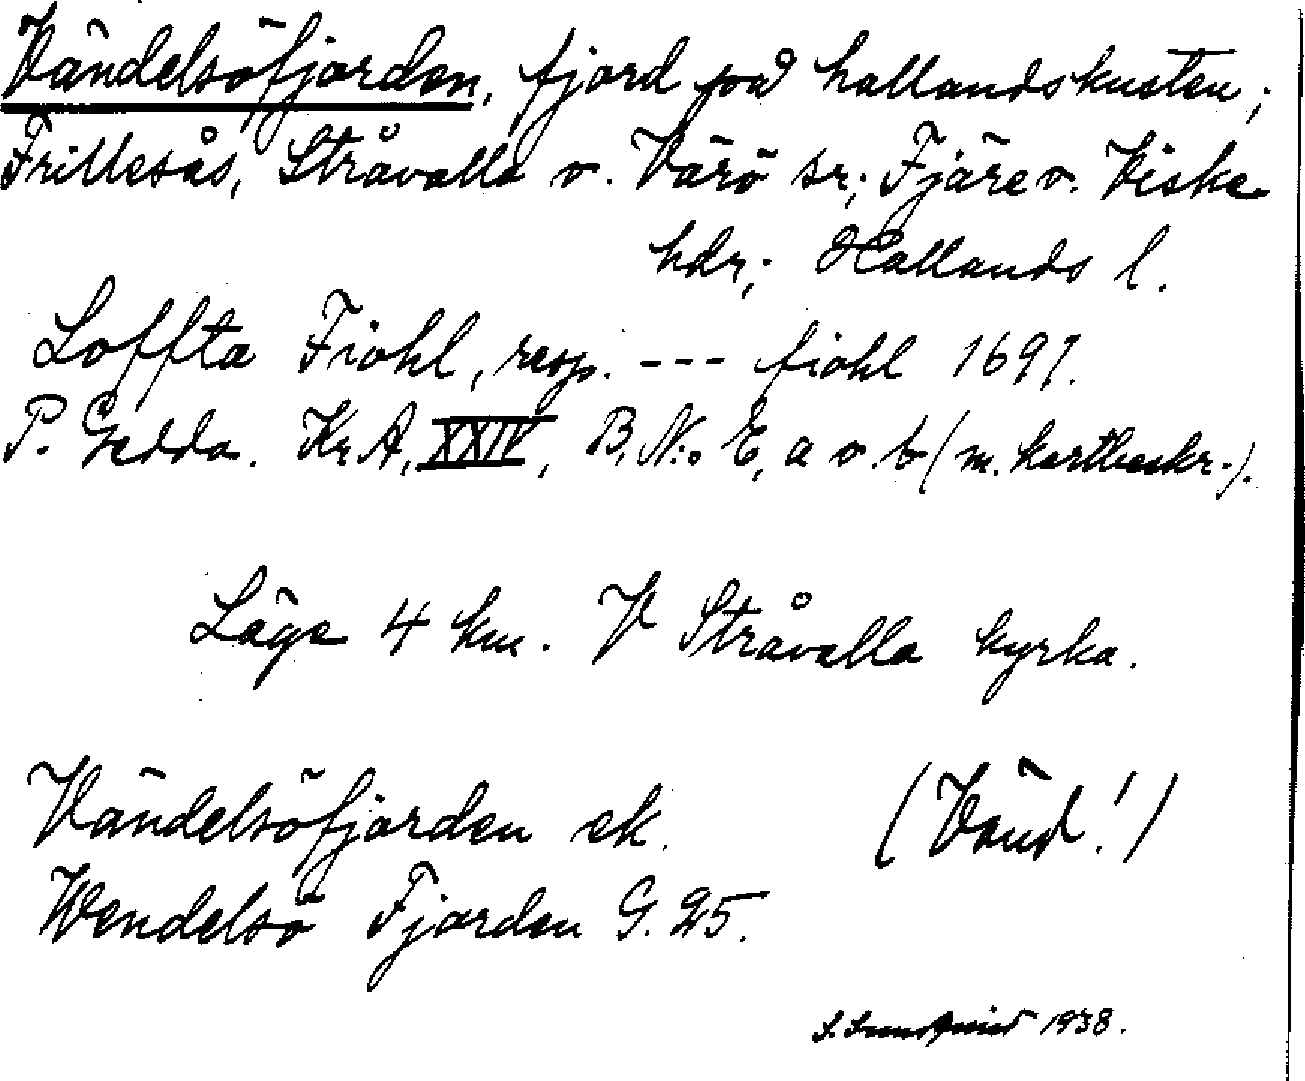 Vändelsöfjorden, fjord på hallandskusten;
Frillesås, Stråvalla o. Värö sr; Fjäre o. Viske
hdr; Hallands l.
Loffta Fiohl, resp. --- fiohl 1697.
P. Gedda. Kr.A, XXIV, B, N:o E, a o. b (m. kartbeskr.).
Läge 4 km. V Stråvalla kyrka.
Vändelsöfjorden ek. (Vänd!)
Wendelsö Fjorden G. 25.
S. Sundqvist 1938.